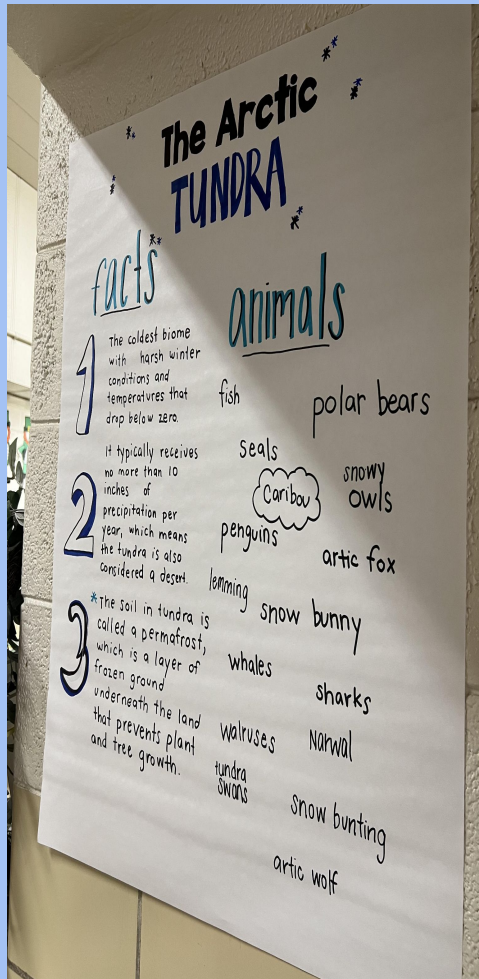 The Arctic
TUNDRA
facts
1
The coldest biome
with harsh winter
conditions and
temperatures that
drop below zero.
2
It typically receives
no more than 10
inches of
precipitation per
year, which means
the tundra is also
considered a desert.
3
*The soil in tundra is
called a permafrost,
which is a layer of
frozen ground
underneath the land
that prevents plant
and tree growth.
animals
fish
polar bears
seals
snowy
owls
Caribou
penguins
artic fox
lemming
snow bunny
whales
sharks
walruses
Narwal
tundra
swans
snow bunting
artic wolf